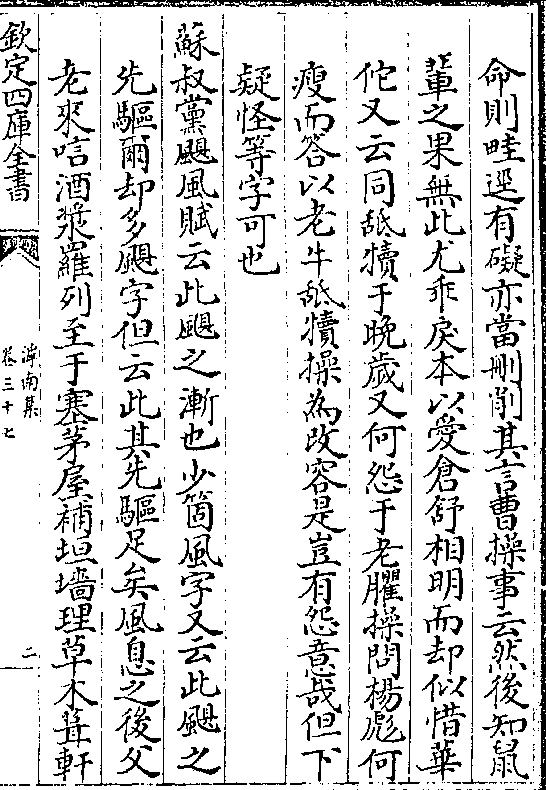 命則畦逕有礙亦當刪削其言曹操事云然後知鼠
輩之果無此尤乖戾本以愛倉舒相明而却似惜華
佗又云同舐犢于晚歲又何怨于老臞操問楊彪何
瘦而答以老牛舐犢操為改容是豈有怨意哉但下
疑怪等字可也
蘇叔黨颶風賦云此颶之漸也少箇風字又云此颶之
先驅爾却多颶字但云此其先驅足矣風息之後父
老來唁酒漿羅列至于塞茅屋補垣墻理草木葺軒
欽定四庫全書
滹南集
卷三十七
二